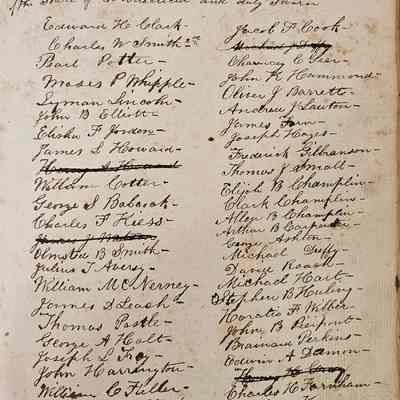 the State of Connecticut and duly sworn
Edward H. Clark-
Charles W Smith 2nd
Pearl Potter-
Moses P Whipple-
Lyman Lincoln-
John B Elliott-
Elisha F Jordon-
James L Howard-
William Cotter-
George S Babcock-
Charles F Hiess-
Olmsted B Smith-
Julius T Avery-
William McNerney-
James D Leash-
Thomas Postle-
George A Holt-
Joseph L Frey-
John Harrington-
William C Fuller-
Jacob F Cook-
Chauncey C Geer-
John K Hammond-
Oliver J Barrett-
Andrew J Lawton-
James Fern-
Joseph Hayes-
Frederick Gilbanson-
Thomas J Small-
Elijah B Champlin-
Clark Champlin-
Allen B Champlin-
Arthur B Carpenter-
George Ashton-
Michael Duffy-
Daniel
Michael Hart-
Stephen B Huling-
Horatio F Wilber-
John B Pierpont-
Brainard Perkins-
Edwin A Damon-
Charles H Farnham-